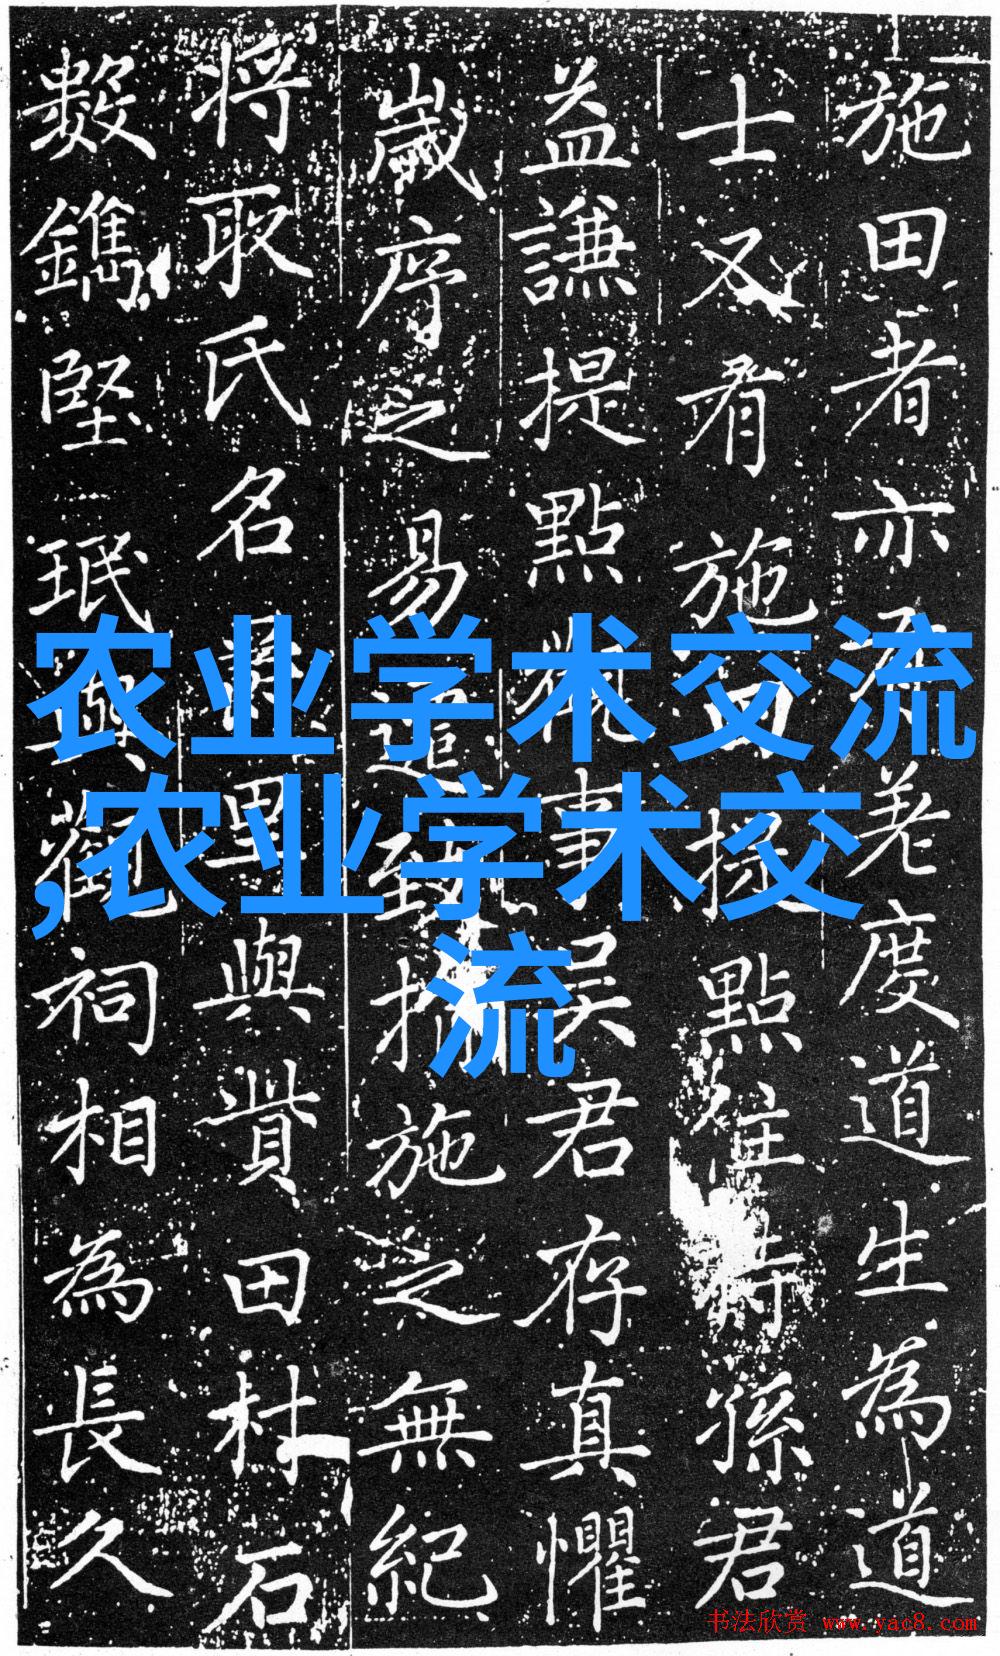 施田者亦有羌度道生為道
士又有施田提點住持孫君
益謙提點觀事吳君存真懼
歲序之易遷施之無紀
將取氏名里與貲田杜石
數鐫堅珉祠相為長久
农业学术交流
,农业学术交
流
书法欣赏 www.yac8.com